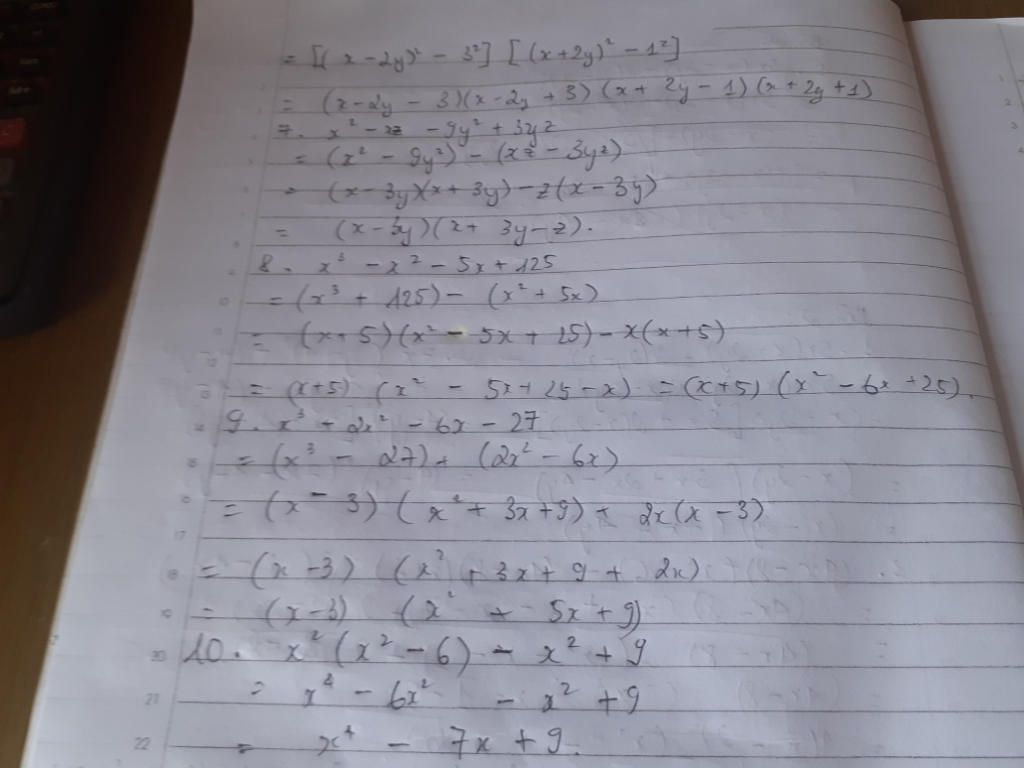 = [(x-2y)² - 3²] [(x+2y)² - 1²]
= (x-2y - 3)(x-2y + 3) (x + 2y - 1) (x + 2y + 1)
7. x² - xz - 9y² + 3yz
= (x² - 9y²) - (xz - 3yz)
= (x - 3y)(x + 3y) - z(x - 3y)
= (x - 3y)(x + 3y - z).
8. x³ - x² - 5x + 125
= (x³ + 125) - (x² + 5x)
= (x + 5)(x² - 5x + 25) - x(x + 5)
= (x+5) (x² - 5x + 25 - x) = (x+5) (x² - 6x + 25).
9. x³ + 2x² - 6x - 27
= (x³ - 27) + (2x² - 6x)
= (x - 3) (x² + 3x + 9) + 2x(x - 3)
= (x - 3) (x² + 3x + 9 + 2x)
= (x - 3) (x² + 5x + 9)
10. x² (x² - 6) - x² + 9
= x⁴ - 6x² - x² + 9
= x⁴ - 7x + 9.